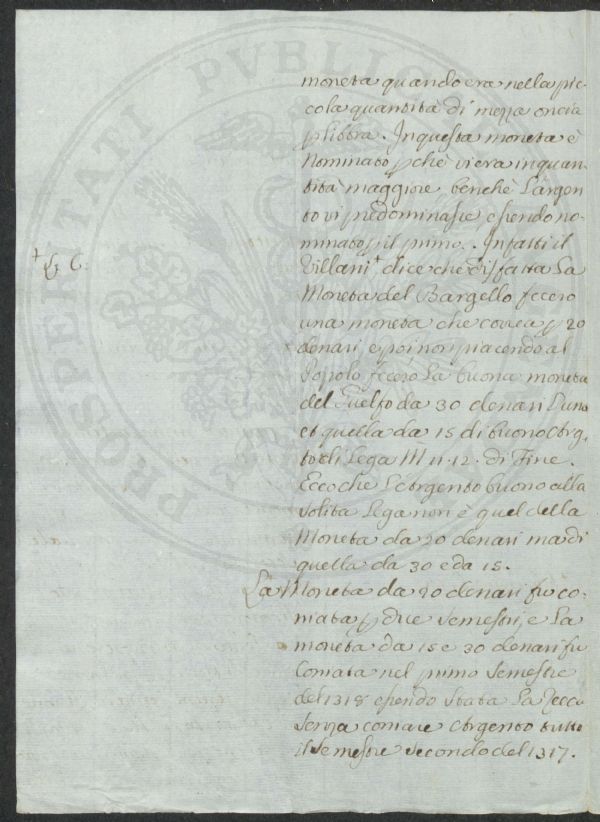 PROSPERITATI PVBLICAE
moneta quando era nella pic-
cola quantità di mezza oncia
p libbra. In questa moneta è
nominato p chè vi era in quan-
tità maggiore benchè L'argen
to vi predominasse, essendo no-
minato p il primo. Infatti il
Villani + dice che disfatta La
+ L. C.
Moneta del Bargello fecero
una moneta che correa p 20
denari, e poi non piacendo al
Popolo fecero La buona moneta
del Guelfo da 30 denari L'uno
et quella da 15 di buono Arg.
to di Lega M 11.12. di Fine.
Ecco che L'Argento buono alla
solita Lega non è quel della
Moneta da 20 denari ma di
quella da 30 e da 15.
La Moneta da 20 denari fu co-
niata p due semestri, e La
moneta da 15 e 30 denari fu
Coniata nel primo Semestre
del 1318 essendo stata La Zecca
senza coniare Argento tutto
il Semestre secondo del 1317.